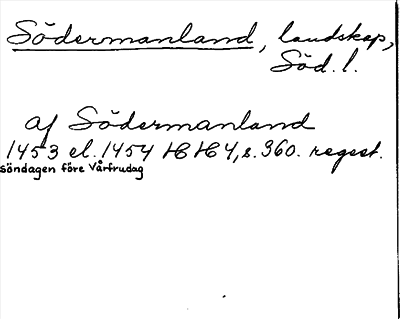 Södermanland, landskap,
Söd. l.
af Södermanland
1453 el. 1454 HH4, s. 360. regest.
Söndagen före Vårfrudag